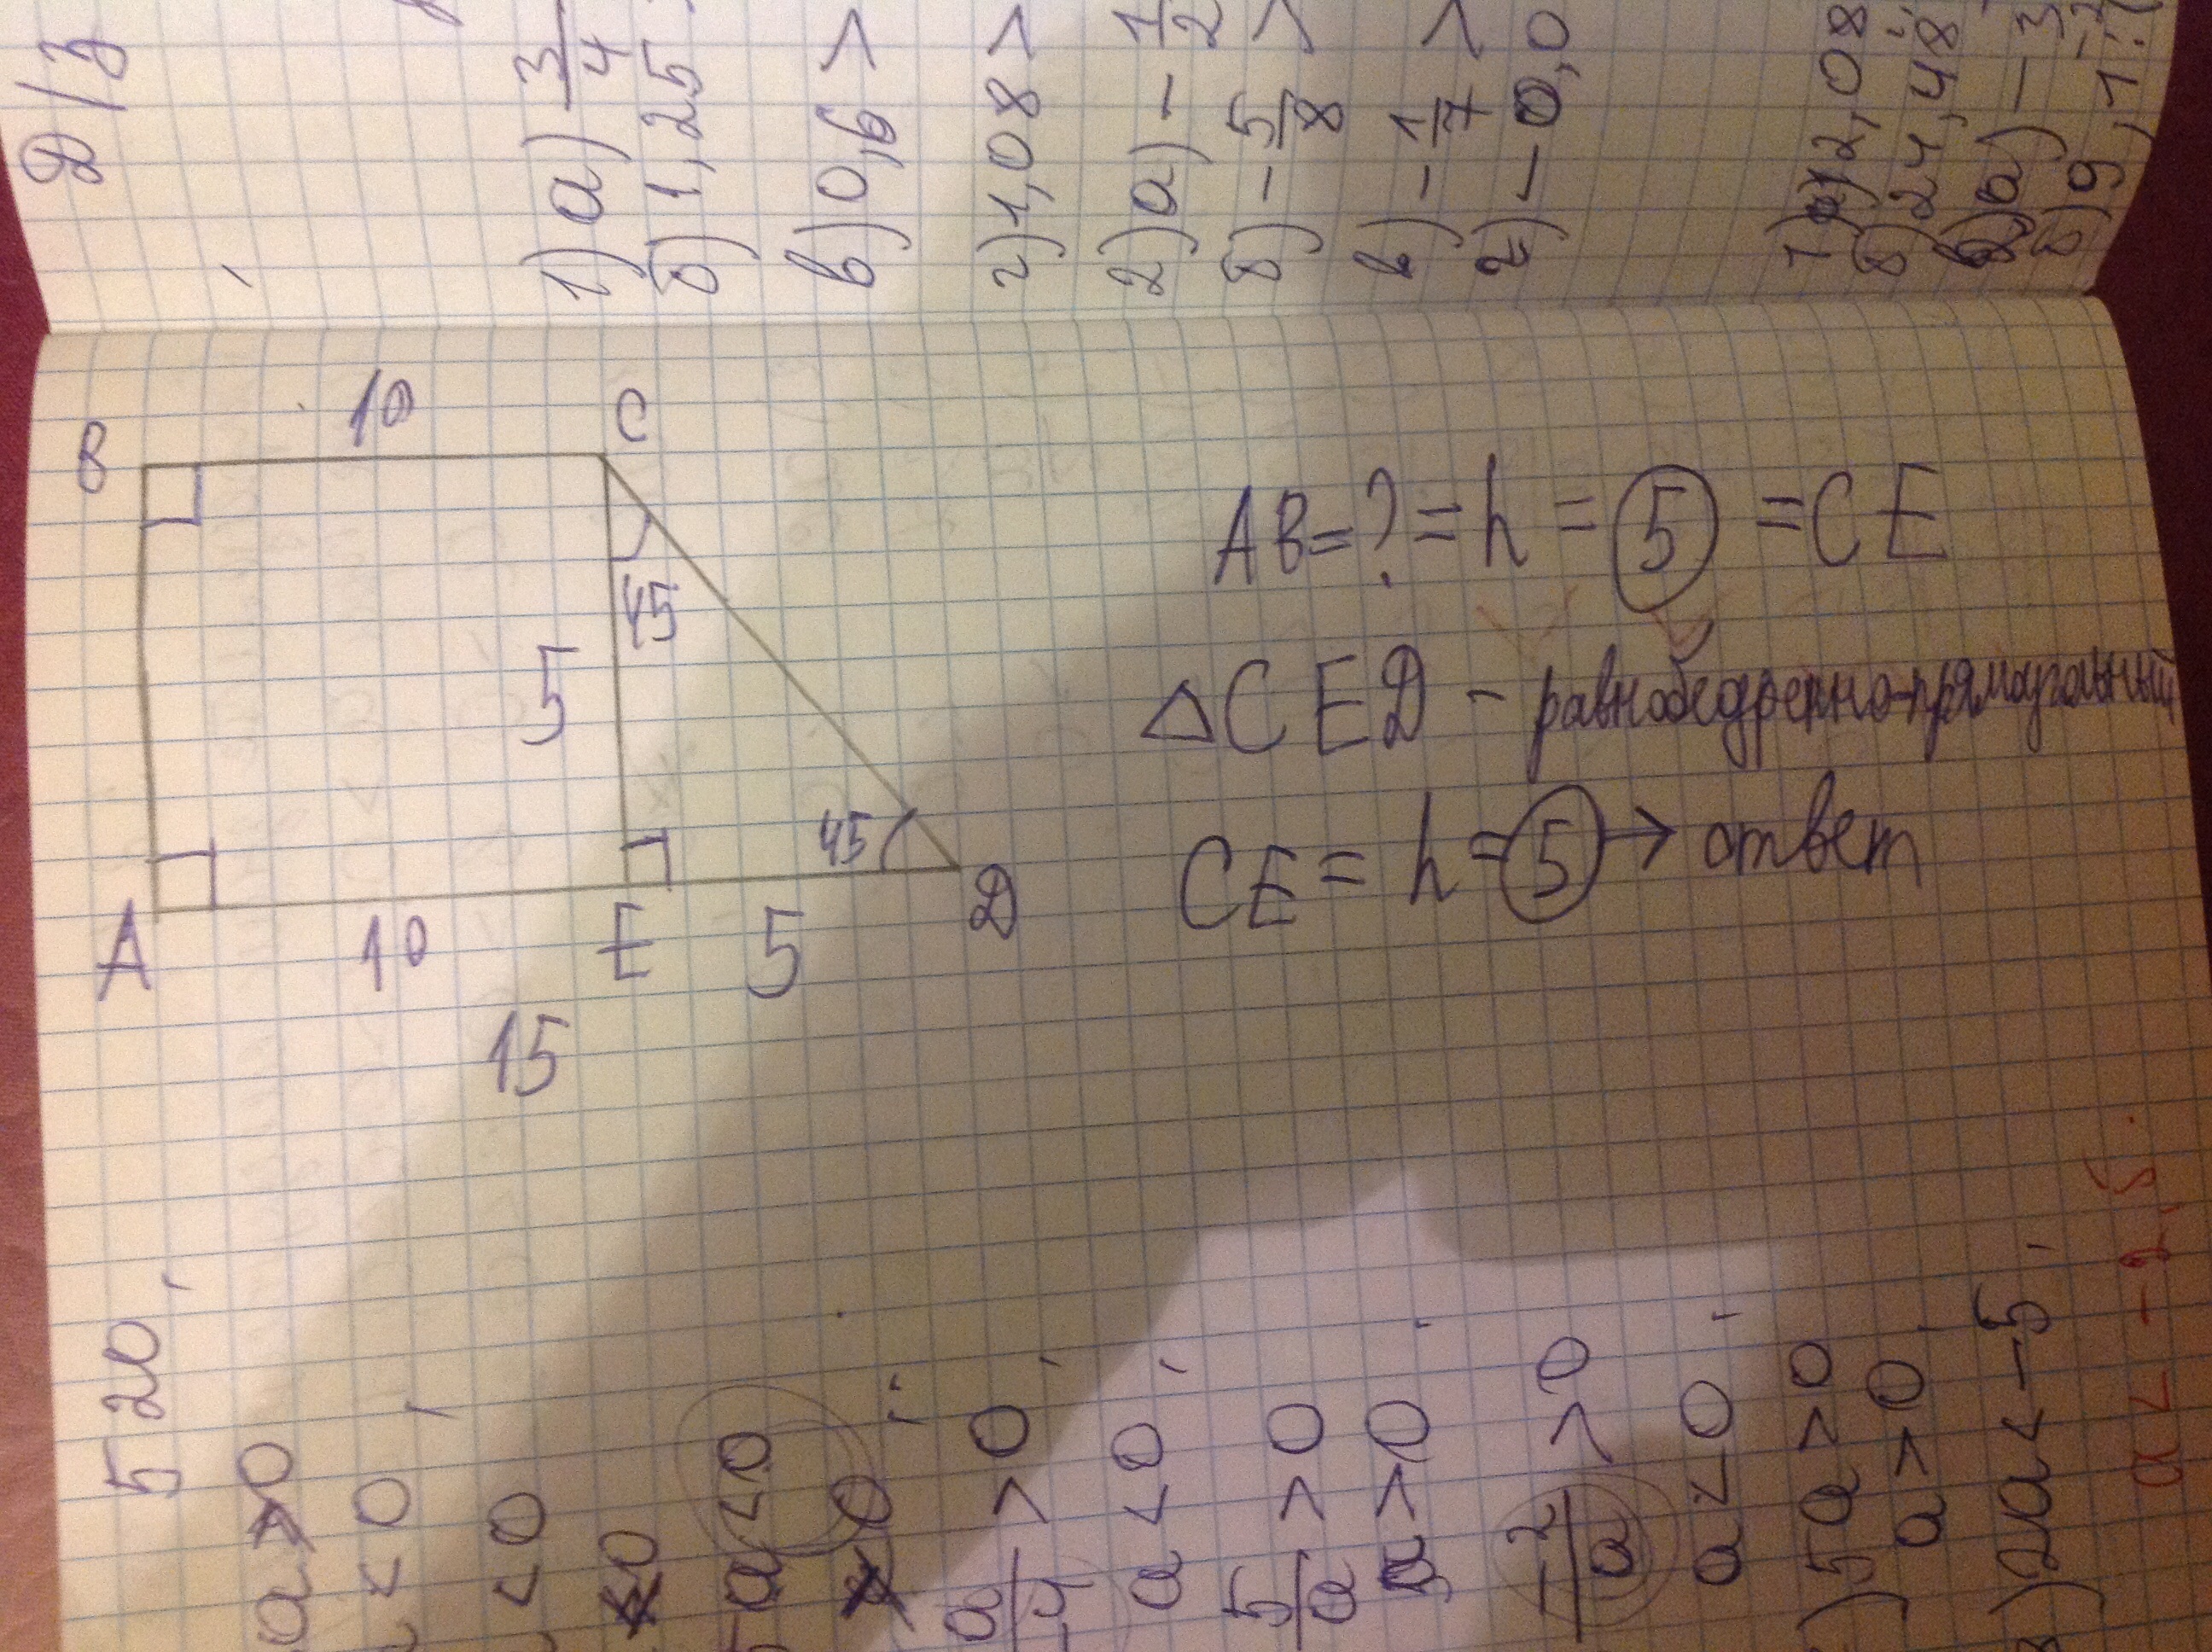 Д/З
1) а) 3/4
б) 1,25
в) 0,6 >
г) 1,08 >
2) а) - 1/2
б) - 5/8 >
в) - 1/7 >
г) - 0,0
1) а) 2,08
б) 24,48
2) а) - 3
б) 9,1
B 10 C
45
5
45
A 10 E 5 D
15
AB = ? = h = 5 = CE
△CED - равнобедренно-прямоугольный
CE = h = 5 → ответ
520
a 0
< 0
< 0
0
a < 0
0
a > 0
a < 0
5/a > 0
a > 0
2/a > 0
a < 0
) 5a > 0
a > 0
) 2a < -5
a < -2,5